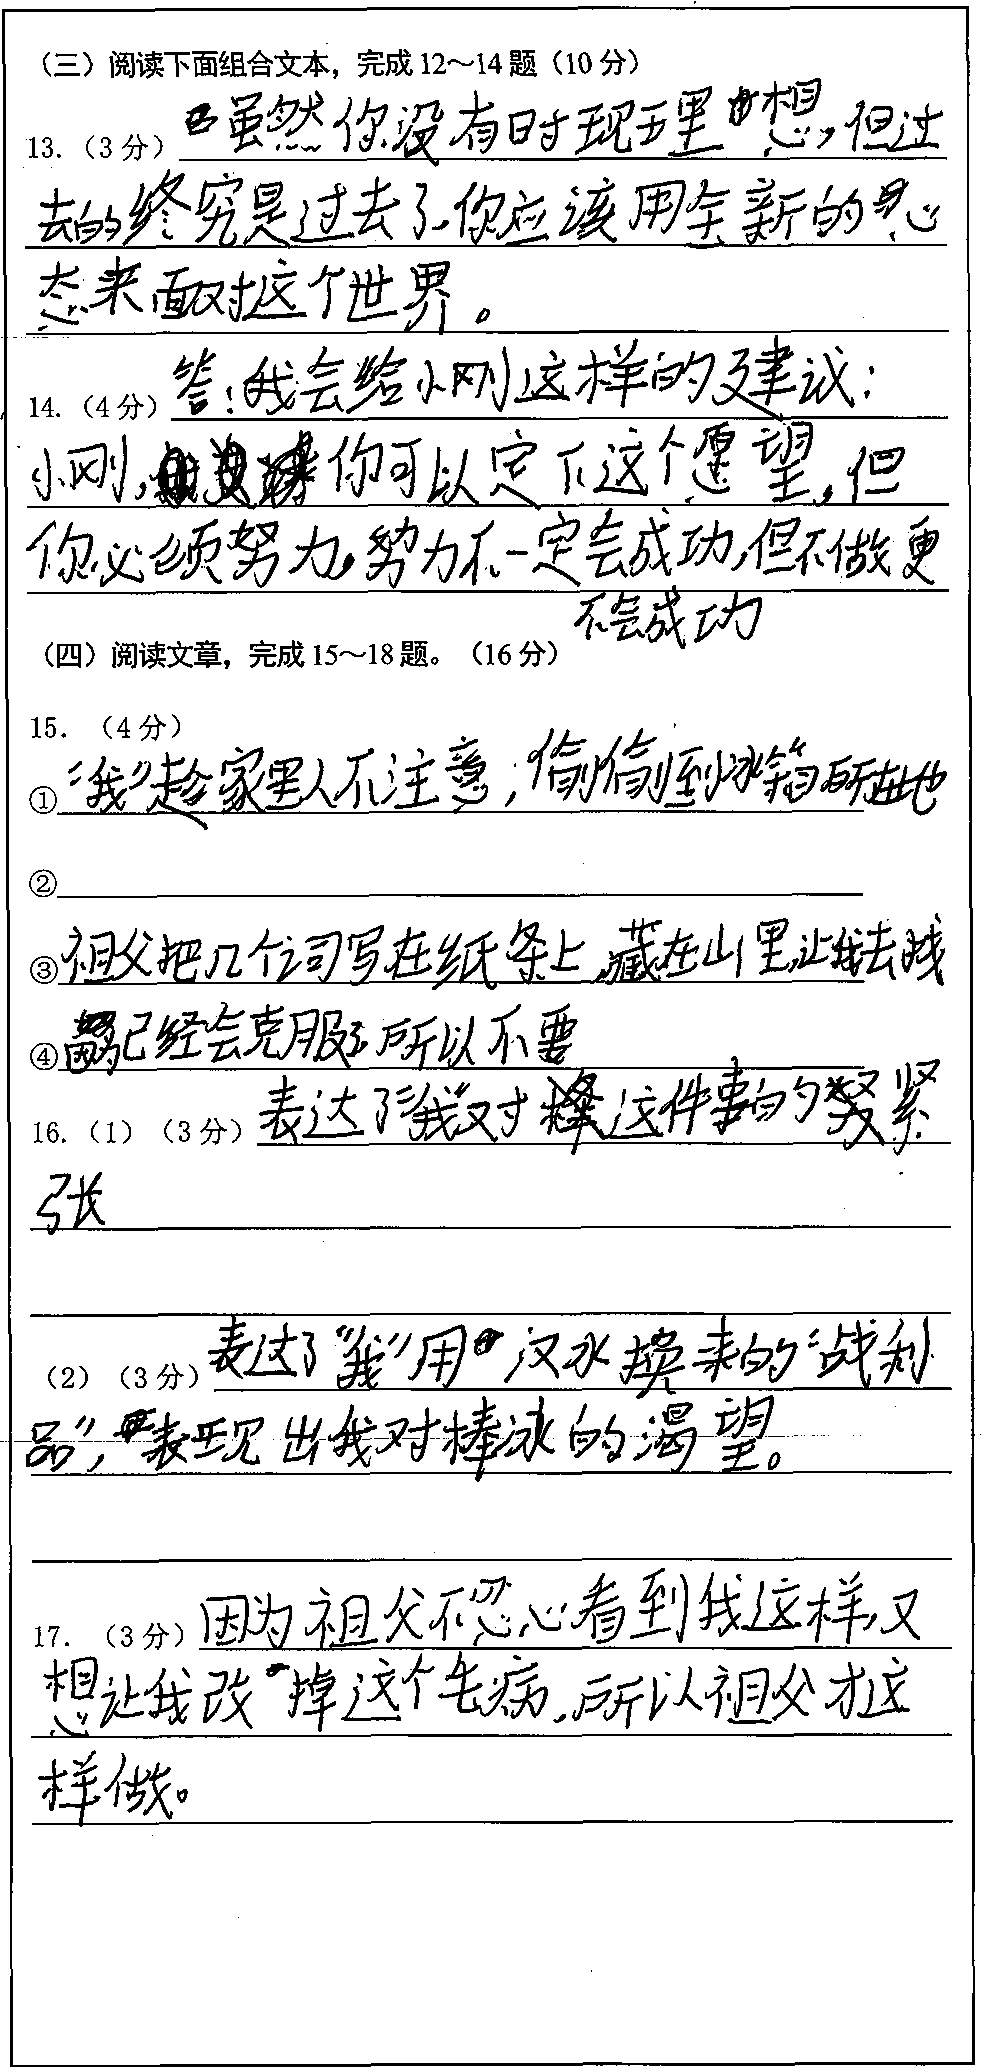 （三）阅读下面组合文本，完成12～14题（10分）
13.（3分）虽然你没有时现理想，但过
去的终究是过去了，你应该用全新的心
态来面对这个世界。
14.（4分）答：我会给小刚这样的建议：
小刚，你可以定下这个愿望，但
你必须努力，努力不一定会成功，但不做更
不会成功
（四）阅读文章，完成15～18题。（16分）
15.（4分）
①“我”趁家里人不注意，偷偷到冰箱所在地
②
③祖父把几个词写在纸条上，藏在山里，让我去找
④已经会克服了所以不要
16.（1）（3分）表达了“我”对这件事的紧
张
（2）（3分）表达了“我”用汉水换来的“战利
品”，表现出我对棒冰的渴望。
17.（3分）因为祖父不忍心看到我这样，又
想让我改掉这个毛病，所以祖父才这
样做。